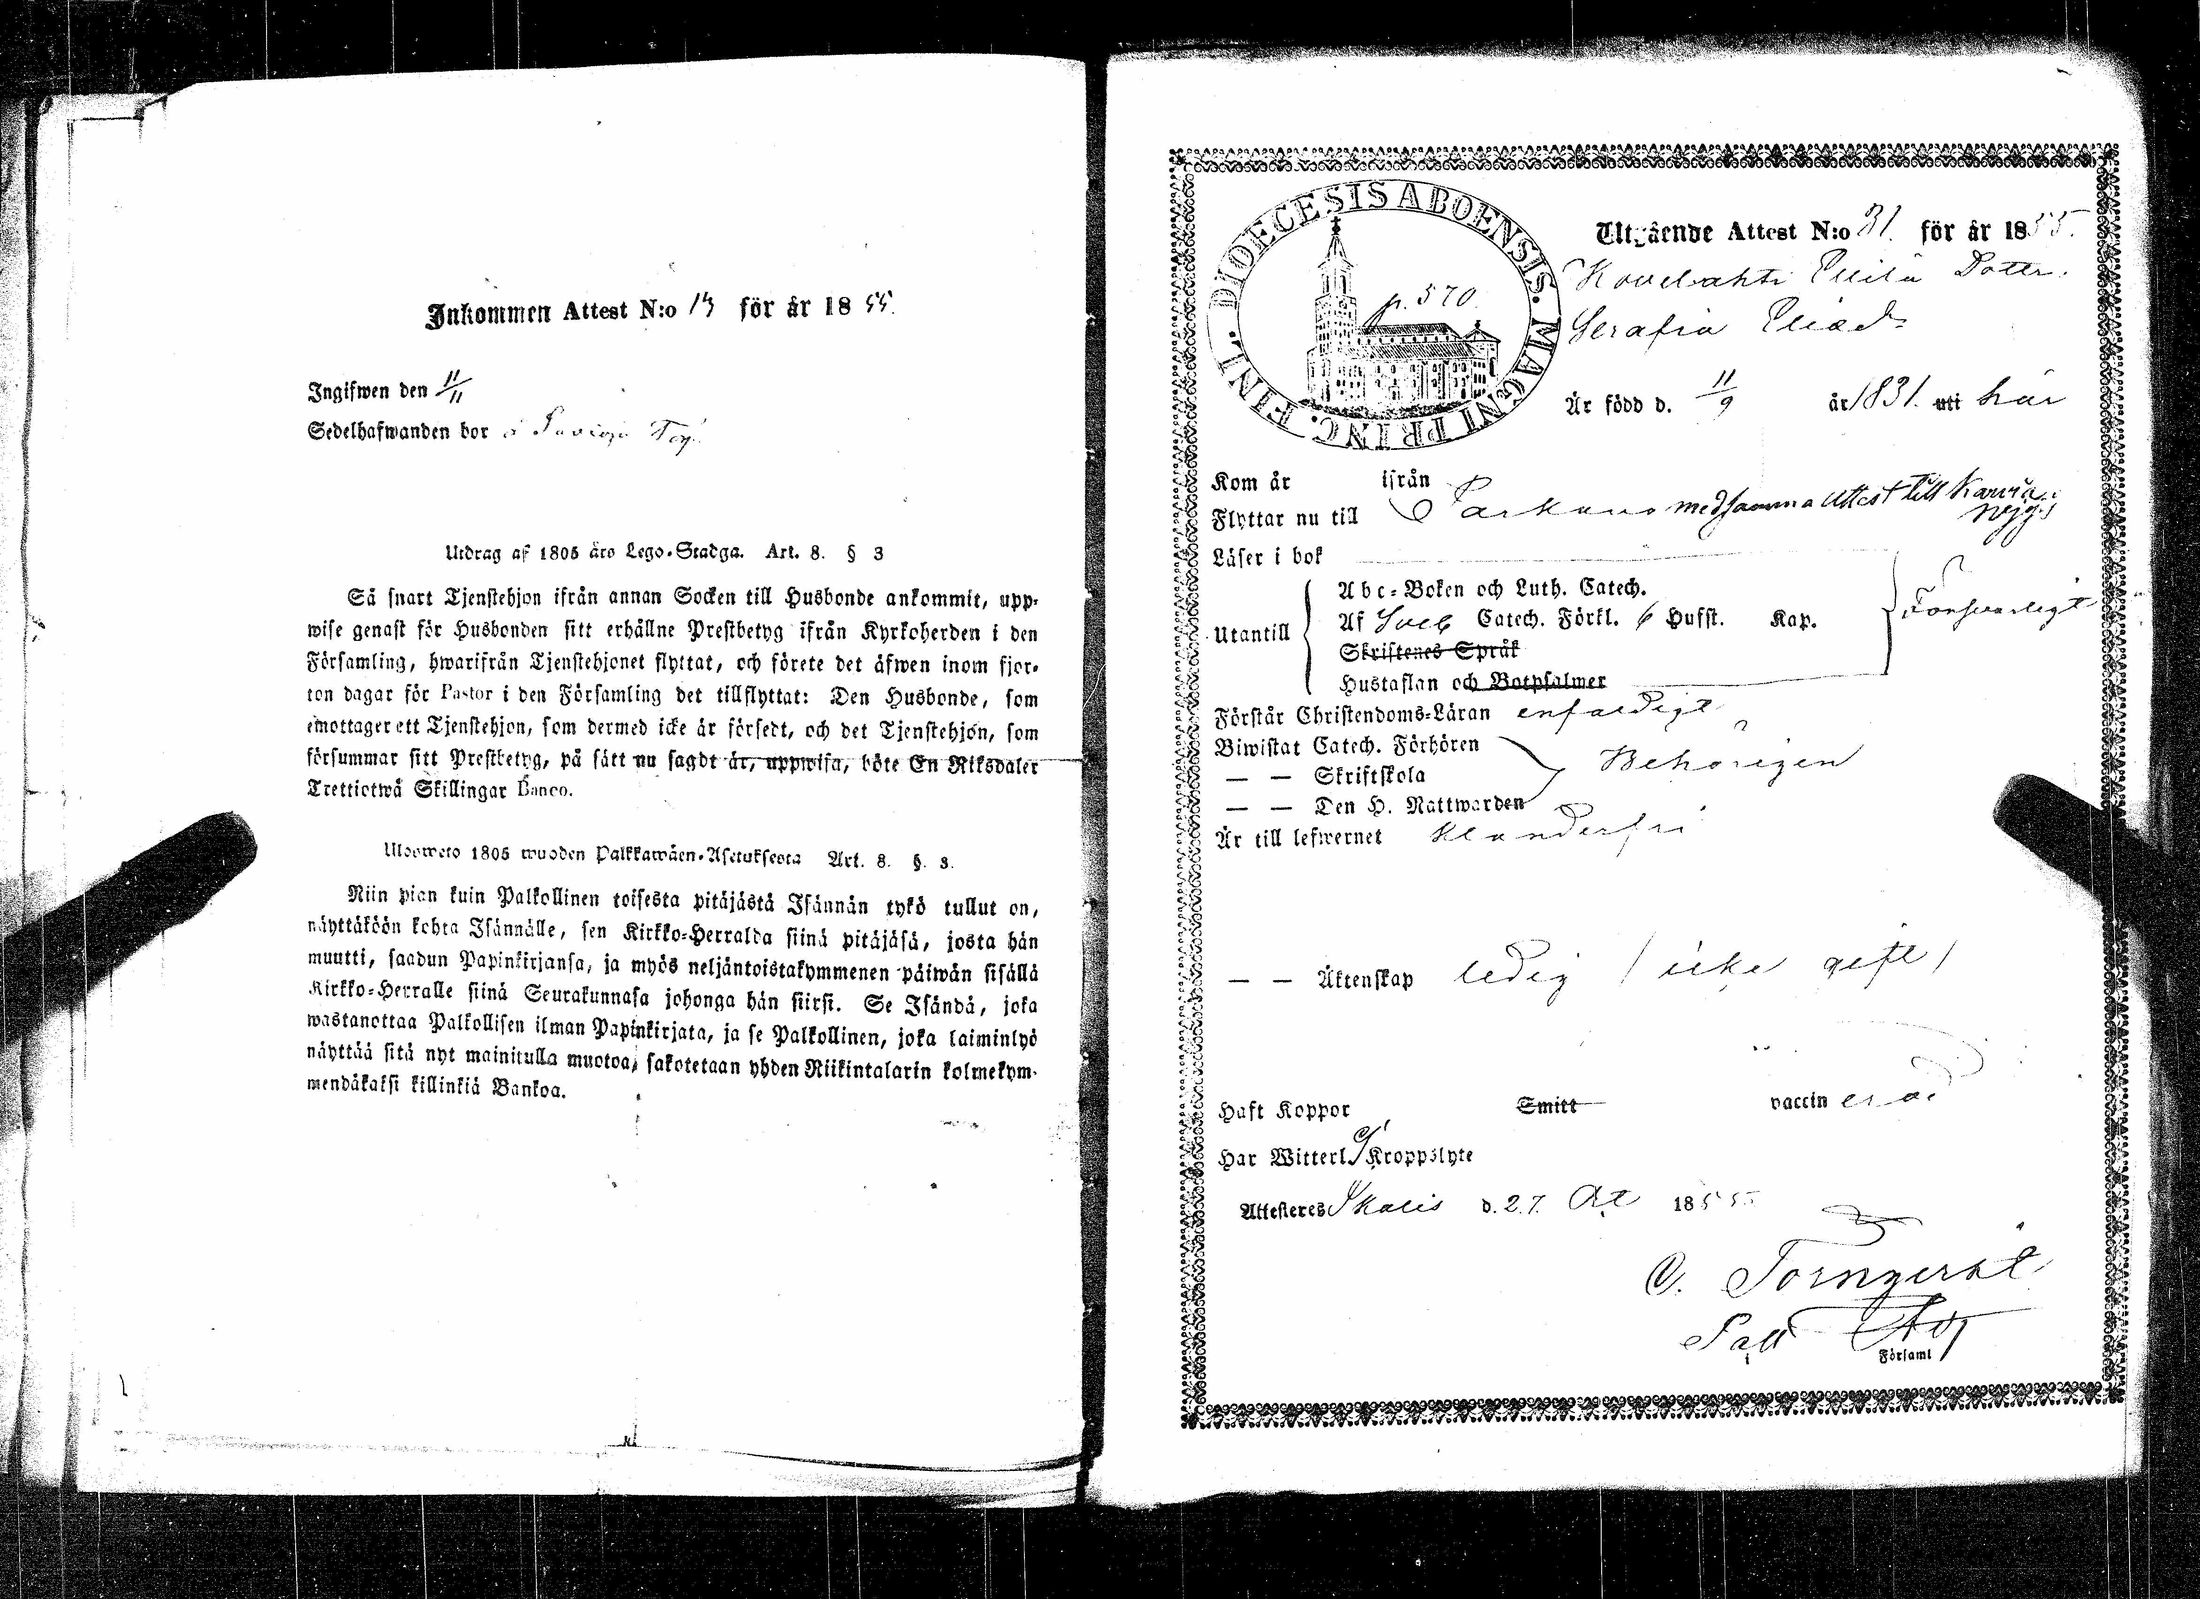 Inkommen Attest N:o 13 för år 1855.
Ingifwen den 11/11
Sedelhafwanden bor
Utdrag af 1805 års Lego-Stadga. Art. 8. § 3
Så snart Tjenstehjon ifrån annan Socken till Husbonde ankommit, upp-
wise genast för Husbonden sitt erhållne Prestbetyg ifrån Kyrkoherden i den
Församling, hwarifrån Tjenstehjonet flyttat, och förete det äfwen inom fjor-
ton dagar för Pastor i den Församling det tillflyttat: Den Husbonde, som
emottager ett Tjenstehjon, som dermed icke är försedt, och det Tjenstehjon, som
försummar sitt Prestbetyg, på sätt nu sagdt är, uppwisa, böte En Riksdaler
Trettiotwå Skillingar Banco.
Ulosweto 1805 wuoden Palkkawäen-Asetuksesta Art. 8. §. 3.
Niin pian kuin Palkollinen toisesta pitäjästä Isännän tykö tullut on,
näyttäköön kohta Isännälle, sen Kirkko-Herralda siinä pitäjäsä, josta hän
muutti, saadun Papinkirjansa, ja myös neljäntoistakymmenen päiwän sisällä
Kirkko-Herralle siinä Seurakunnasa johonga hän siirsi. Se Isändä, joka
wastanottaa Palkollisen ilman Papinkirjata, ja se Palkollinen, joka laiminlyö
näyttää sitä nyt mainitulla muotoa, sakotetaan yhden Riikintalarin kolmekym-
mendäkaksi killinkiä Bankoa.
DIOECESIS ABOENSIS. MAGNI PRINC. FINL.
p. 570.
Utgående Attest N:o 31. för år 1855.
Dotter
Serafia
Är född d. 11/9 år 1831. uti här
Kom år ifrån
Flyttar nu till Parkano med samma attest till Karvia
Läser i bok
Utantill
Abc-Boken och Luth. Catech.
Af Sveb Catech. Förkl. 6 Hufst. Kap.
Skriftenes Språk
Hustaflan och Botpsalmer
Försvarligt
Förstår Christendoms-Läran enfaldigt
Biwistat Catech. Förhören
— — Skriftskola
— — Den H. Nattwarden
Behörigen
Är till lefwernet klanderfri
— — Äktenskap ledig / icke gift /
Haft Koppor Smitt vaccin
Har Witterl. Kroppslyte
Attesteres Ikalis d. 27. Oct 1855
C. Tornqvist
Församl